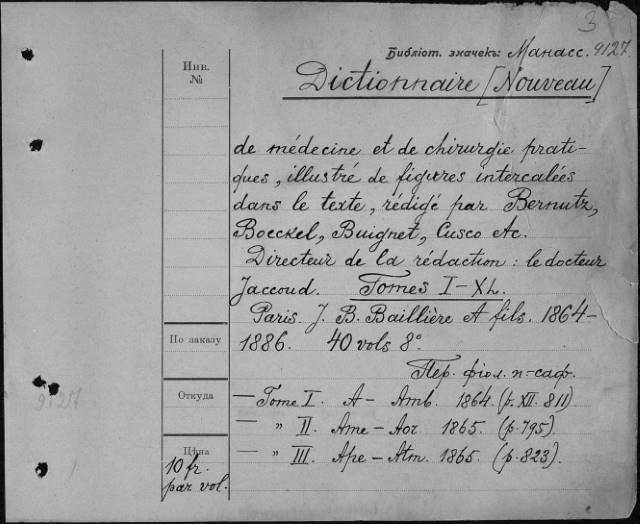 3
Библіот. значекъ: Манасс. 9127
Инв.
№
Dictionnaire [Nouveau]
de médecine et de chirurgie prati-
ques, illustré de figures intercalées
dans le texte, rédigé par Bernutz,
Boeckel, Buignet, Cusco etc.
Directeur de la rédaction: le docteur
Jaccoud. Tomes I-XL.
Paris. J. B. Baillière et fils. 1864-
1886. 40 vols 8°.
По заказу
Пер. фіол. п-саф.
Откуда
9127
— Tome I. A - Amb. 1864. (p. XII. 811)
— " II. Ame - Aor. 1865. (p. 795).
— " III. Ape - Atm. 1865. (p. 823).
Цѣна
10 fr.
par vol.